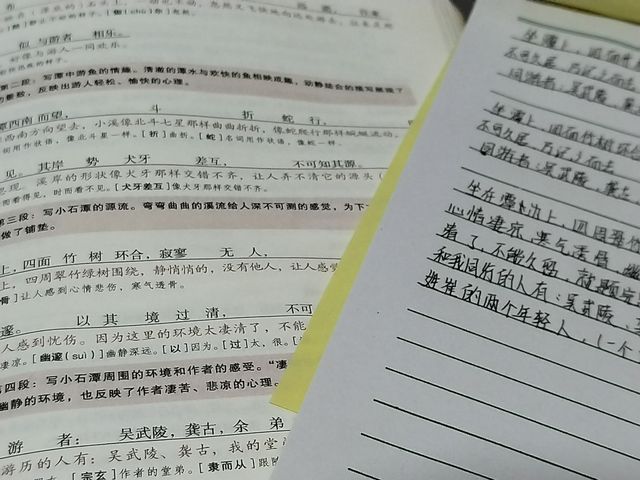 似与游者 相乐。
好像与游人一同欢乐。
第二段：写潭中游鱼的情趣。清澈的潭水与欢快的鱼相映成趣，动静结合的描写展现了
反映出游人轻松、愉快的心理。
潭西南而望， 斗 折 蛇 行，
西南方向望去，小溪像北斗七星那样曲曲折折，像蛇爬行那样蜿蜒流动，
词用作状语，像北斗星一样。[折]曲折。[蛇]名词用作状语，像蛇一样。
见。其岸 势 犬牙 差互， 不可知其源。
溪岸的形状像犬牙那样交错不齐，让人弄不清它的源头
时而看得见，时而看不见。[犬牙差互]像犬牙那样交错不齐。
第三段：写小石潭的源流。弯弯曲曲的溪流给人深不可测的感觉，为下
做了铺垫。
上，四面 竹 树 环合，寂寥 无 人，
上，四周翠竹绿树围绕，静悄悄的，没有他人，让人感觉
骨]让人感到心情悲伤，寒气透骨。
邃。 以 其 境 过 清， 不可
人感到忧伤。因为这里的环境太凄清了，不能
凄凉。[幽邃(suì)]幽静深远。[以]因为。[过]太，很。[清
四段：写小石潭周围的环境和作者的感受。“凄
幽静的环境，也反映了作者凄苦、悲凉的心理。
游 者： 吴武陵，龚古，余 弟
游历的人有：吴武陵、龚古，我的堂
[宗玄]作者的堂弟。[隶而从]跟随
坐潭上，四面竹树
不可久居，乃记之而去
同游者：吴武陵，龚
坐潭上，四面竹树环
不可久居，乃记之而去
同游者：吴武陵，龚古
坐在潭上，四周翠
心情凄凉，寒气透骨，幽
清了，不能久留，就题完
和我同游的人有：吴武陵、
姓崔的两个年轻人，(一个